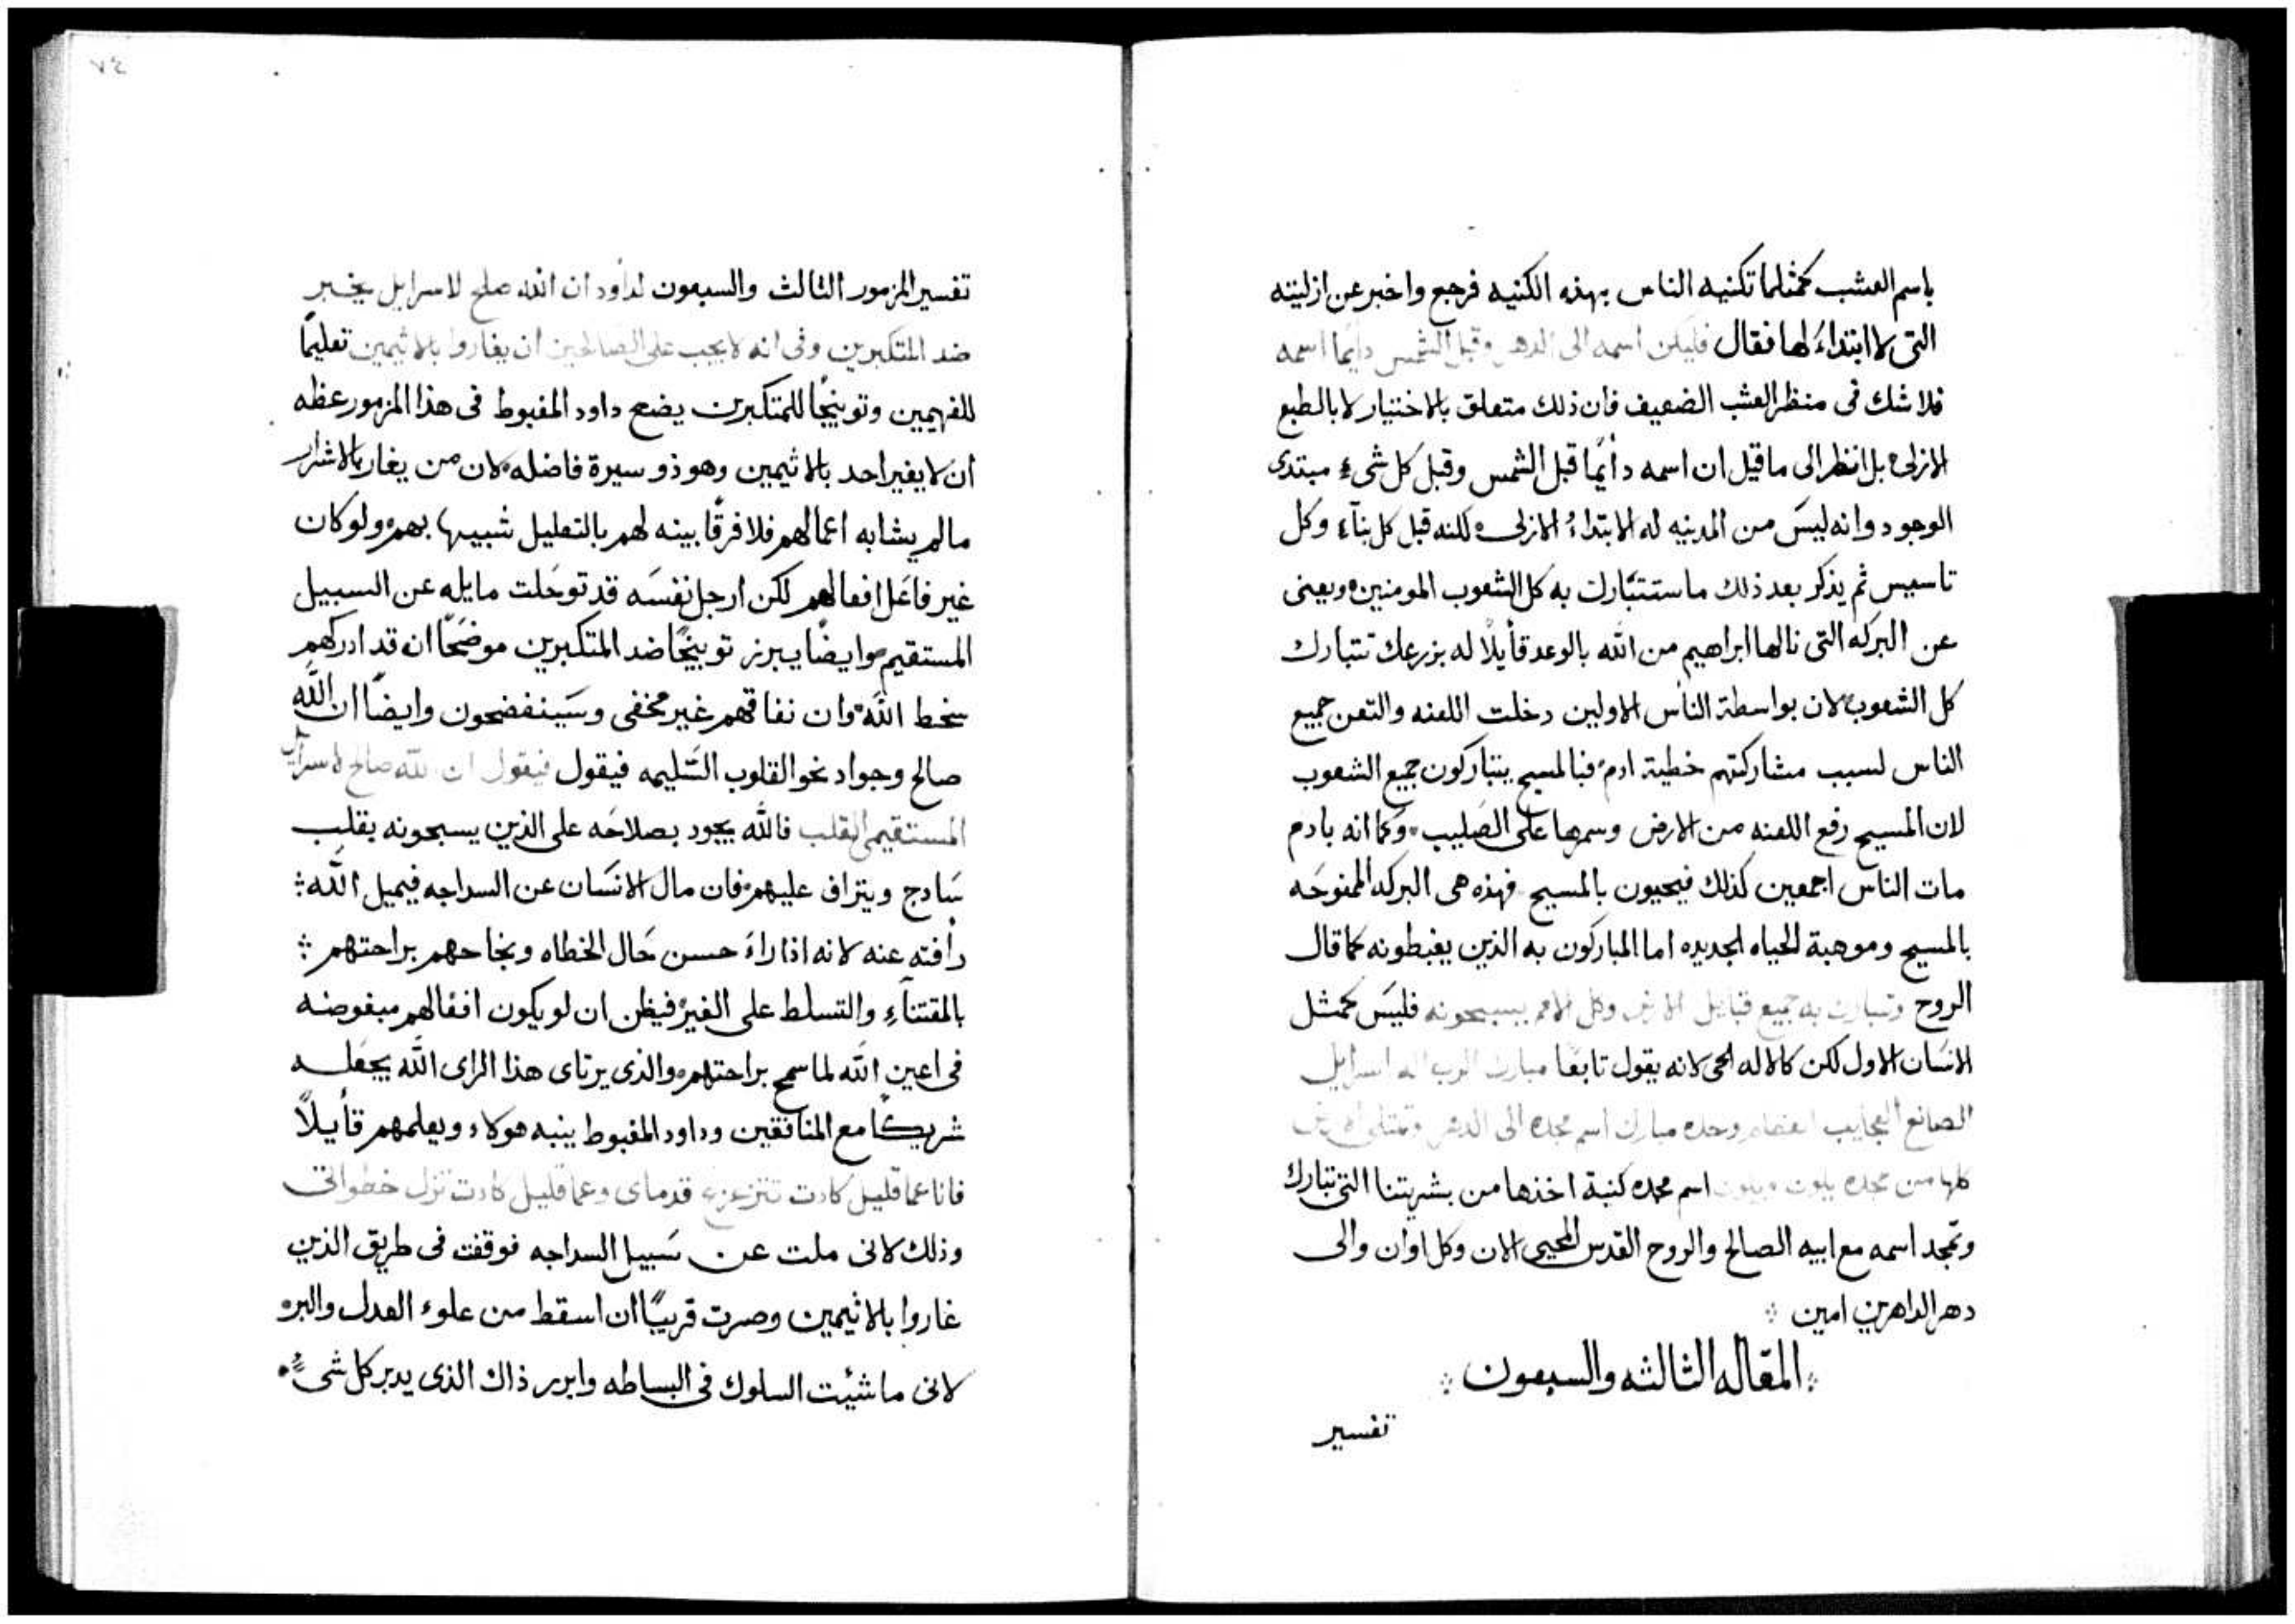 باسم العشب كمثلما تكنيه الناس بهذه الكنيه فرجع واخبر عن ازليته
التى لا ابتداءُ لها فقال فليكن اسمه الى الدهر وقبل الشمس دايمًا اسمه
فلا شك فى منظر العشب الضعيف فان ذلك متعلق بالاختيار لا بالطبع
الازلى بل انظر الى ماقيل ان اسمه دائمًا قبل الشمس وقبل كل شىءٍ مبتدى
الوجود وانه ليسَ من المدنيه له الابتداءُ الازلى لكنه قبل كل بنآءٍ وكل
تاسيس ثم يذكر بعد ذلك ما ستتبارك به كل الشعوب المومنين ويعنى
عن البركه التى نالها ابراهيم من الله بالوعد قأيلاً له بزرعك تتبارك
كل الشعوب لان بواسطة الناس الاولين دخلت اللعنه والتعن جميع
الناس لسبب مشاركتهم خطية ادم فبالمسيح يتباركون جميع الشعوب
لان المسيح رفع اللعنه من الارض وسمرها على الصَليب وكما انه بادم
مات الناس اجمعين كذلك فيحيون بالمسيح فهذه هى البركه الممنوحَه
بالمسيح وموهبة الحياه الجديده اما المباركون به الذين يغبطونه كما قال
الروح وتتبارك به جميع قبايل الارض وكل الامم يسبحونه فليسَ كمثل
الانسَان الاول لكن كالاله الحى لانه يقول تابعًا مبارك الرب اله اسرايل
الصانع العجايب العظام وحده مبارك اسم مجده الى الدهر وتمتلى الارض
كلها من مجده يكون ويكون اسم مجده كنية اخذها من بشريتنا التى تتبارك
وتمجد اسمه مع ابيه الصالح والروح القدس المحيى الان وكل اوان والى
دهر الداهرين امين
المقاله الثالثه والسبعون
تفسير
٧٤
تفسير المزمور الثالث والسبعون لداود ان الله صالح لاسرايل يخبر
ضد المتكبرين وفى انه لا يجب على الصَالحين ان يغاروا بالاثيمين تعليمًا
للفهيمين وتوبيخًا للمتكبرين يضع داود المغبوط فى هذا المزمور عظه
ان لا يغير احد بالاثيمين وهو ذو سيرة فاضله لان من يغار بالاشرار
مالم يشابه اعمالهم فلا فرقًا بينه لهم بالتعليل شبيهًا بهم ولو كان
غير فاعَل افعالهم لكن ارجل نفسَه قد توحَلت مايله عن السبيل
المستقيم وايضًا يبرز توبيخًا ضد المتكبرين موضحًا ان قد ادركهم
سخط الله وان نفاقهم غير مخفى وسَينفضحون وايضًا ان الله
صالح وجواد نحو القلوب السَليمه فيقول فيقول ان الله صالح لاسرايل
المستقيمى القلب فالله يجود بصلاحَه على الذين يسبحونه بقلب
سَادج ويتراف عليهم فان مال الانسَان عن السداجه فيميل الله
رأفته عنه لانه اذا راءَ حسن حَال الخطاه ونجاحهم براحتهم
بالمقتنآءِ والتسلط على الغير فيظن ان لو يكون افعالهم مبغوضه
فى اعين الله لما سمح براحتهم والذى يرتاى هذا الراى الله يجعَله
شريكًا مع المنافقين وداود المغبوط ينبه هولاء ويعلمهم قأيلاً
فانا عما قليل كادت تتزعزع قدماى وعما قليل كادت تزل خطواتى
وذلك لانى ملت عن سَبيل السداجه فوقفت فى طريق الذين
غاروا بالاثيمين وصرت قريبًا ان اسقط من علوء العدل والبر
لانى ما شئيت السلوك فى البساطه وابرر ذاك الذى يدبر كل شىءٍ